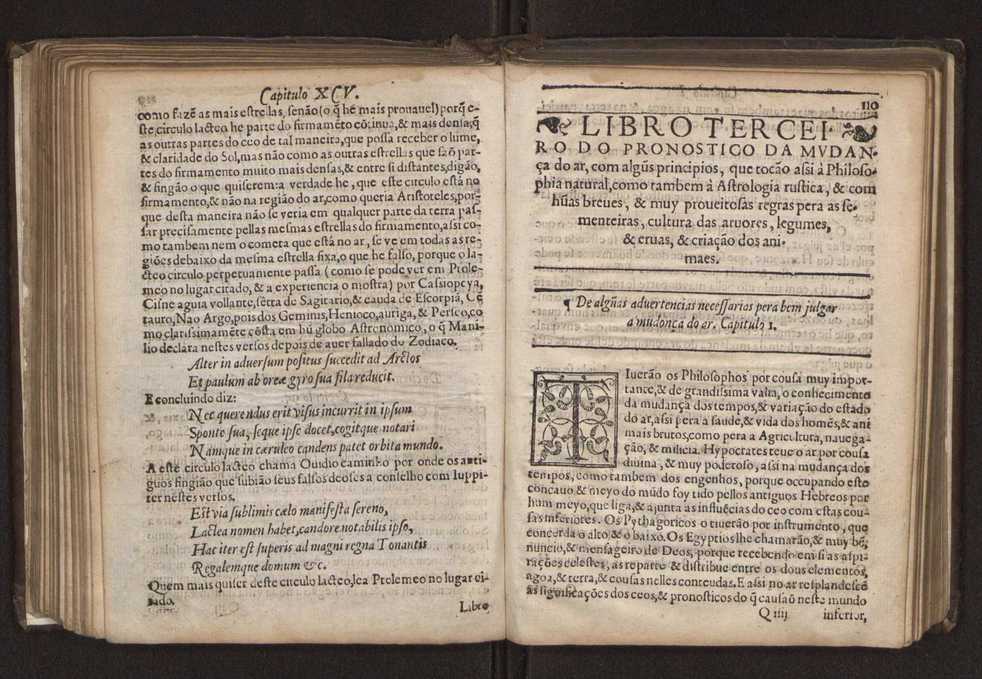 Capitulo XCV.
como fazẽ as mais estrellas, senão (o q̃ hé mais prouauel) porq̃ e-
ste, circulo lacteo he parte do firmamẽto cõtinua, & mais densa; q̃
as outras partes do ceo de tal maneira, que possa receber o lume,
& claridade do Sol, mas não como as outras estrellas que saõ par-
tes do firmamento muito mais densas, & entre si distantes, digão,
& fingão o que quiserem: a verdade he, que este circulo está no
firmamento, & não na região do ar, como queria Aristoteles, porq̃
que desta maneira não se veria em qualquer parte da terra pas-
sar precisamente pellas mesmas estrellas do firmamento, assi co-
mo tambem nem o cometa que está no ar, se ve em todas as re-
giões debaixo da mesma estrella fixa, o que he falso, porque o la-
cteo circulo perpetuamente passa (como se pode ver em Ptole-
meo no lugar citado, & a experiencia o mostra) por Cassiopeya,
Cisne aguia vollante, setta de Sagitario, & cauda de Escorpiã, Cẽ
tauro, Nao Argo, pois dos Geminis, Henioco, auriga, & Perseo, co
mo clarissimamẽte cõsta em hũ globo Astronomico, o q̃ Mani-
lio declara nestes versos depois de auer fallado do Zodiaco.
Alter in aduersum positus succedit ad Arctos
Et paulum ab oreæ gyro sua fila reducit.
E concluindo diz:
Nec querendus erit visus incurrit in ipsum
Sponte sua, seque ipse docet, cogitque notari
Namque in cæruleo candens patet orbita mundo.
A este circulo lacteo chama Ouidio caminho por onde os anti-
guos fingião que subião seus falsos deoses a conselho com Iuppi-
ter nestes versos.
Est via sublimis cælo manifesta sereno,
Lactea nomen habet, candore notabilis ipso,
Hac iter est superis ad magni regna Tonantis
Regalemque domum &c.
Quem mais quiser deste circulo lacteo, lea Ptolemeo no lugar ci-
tado.
Libro
110
LIBRO TERCEI-
RO DO PRONOSTICO DA MVDAN-
ça do ar, com algũs principios, que tocão assi à Philoso-
phia natural, como tambem à Astrologia rustica, & com
hũas breues, & muy proueitosas regras pera as se-
menteiras, cultura das aruores, legumes,
& eruas, & criação dos ani-
maes.
¶ De algũas aduertencias necessarias pera bem julgar
a mudonça do ar. Capitulo 1.
TIuerão os Philosophos por cousa muy impor-
tance, & de grandissima valia, o conhecimento
da mudança dos tempos, & variação do estado
do ar, assi pera a saude, & vida dos homẽs, & ani
mais brutos, como pera a Agricultura, nauega-
ção, & milicia. Hypocrates teue o ar por cousa
diuina, & muy poderoso, assi na mudança dos
tempos, como tambem dos engenhos, porque occupando esto
concauo & meyo do mũdo foy tido pellos antiguos Hebreos por
hum meyo, que liga, & ajunta as influẽcias do ceo com estas cou-
sas inferiores. Os Pythagoricos o tiuerão por instrumento, que
concerda o alto & o baixo. Os Egyptios lhe chamarão, & muy bẽ,
nuncio, & mensageiro de Deos, porque recebendo em si as aspi-
rações celestes, as reparte & distribue entre os dous elementos,
agoa, & terra, & cousas nelles conteudas. E assi no ar resplandesẽ
as significações dos ceos, & pronosticos do q̃ causaõ neste mundo
Q iiij
inferior,